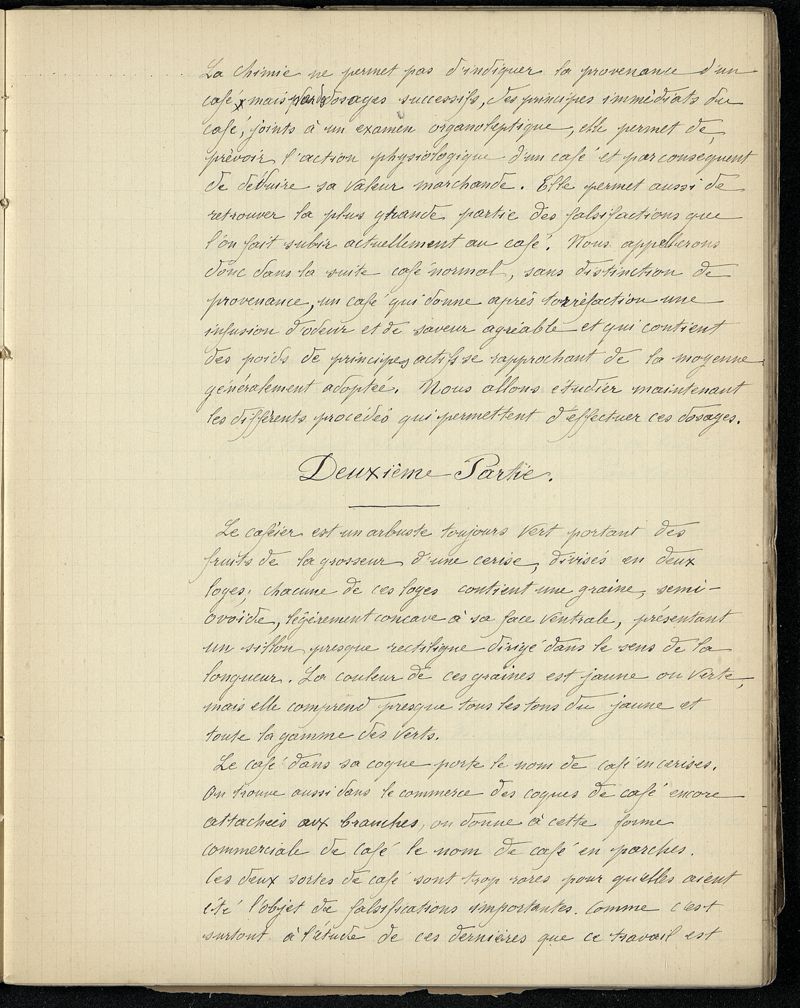 La Chimie ne permet pas d'indiquer la provenance d'un
café, mais par dosages successifs, des principes immédiats du
café, joints à un examen organoleptique, elle permet de
prévoir l'action physiologique d'un café et par consequent
de déduire sa valeur marchande. Elle permet aussi de
retrouver la plus grande partie des falsifactions que
l'on fait subir actuellement au café. Nous appellerons
donc dans la suite café normal, sans distinction de
provenance, un café qui donne après torréfaction une
infusion d'odeur et de saveur agréable et qui contient
des poids de principes actifs se rapprochant de la moyenne
généralement adoptée. Nous allons étudier maintenant
les différents procédés qui permettent d'effectuer ces dosages.
Deuxième Partie.
Le caféier est un arbuste toujours vert portant des
fruits de la grosseur d'une cerise, divisés en deux
loges; chacune de ces loges contient une graine, semi-
ovoïde, légèrement concave à sa face ventrale, présentant
un sillon presque rectiligne dirigé dans le sens de la
longueur. La couleur de ces graines est jaune ou verte,
mais elle comprend presque tous les tons du jaune et
toute la gamme des verts.
Le café dans sa coque porte le nom de café en cerises.
On trouve aussi dans le commerce des coques de café encore
attachées aux branches, on donne à cette forme
commerciale de café le nom de café en parches.
Ces deux sortes de café sont trop rares pour qu'elles aient
été l'objet de falsifications importantes. Comme c'est
surtout à l'étude de ces dernières que ce travail est